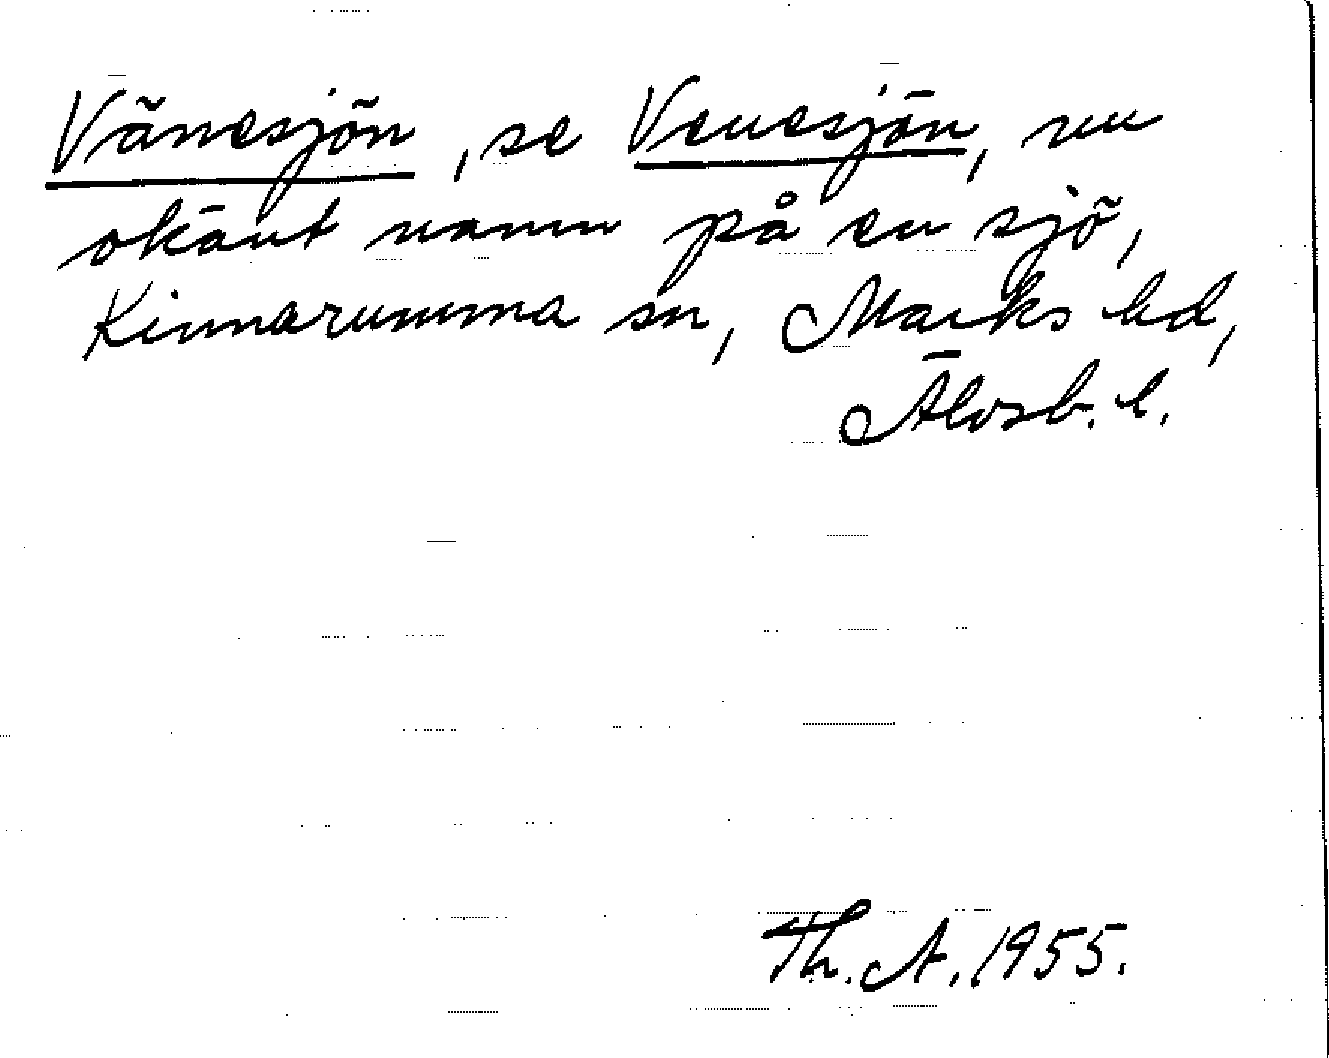 Vänesjön, se Venesjön, nu
okänt namn på en sjö,
Kinnarumma sn, Marks hd,
Älvsb. l.
Th. A. 1955.